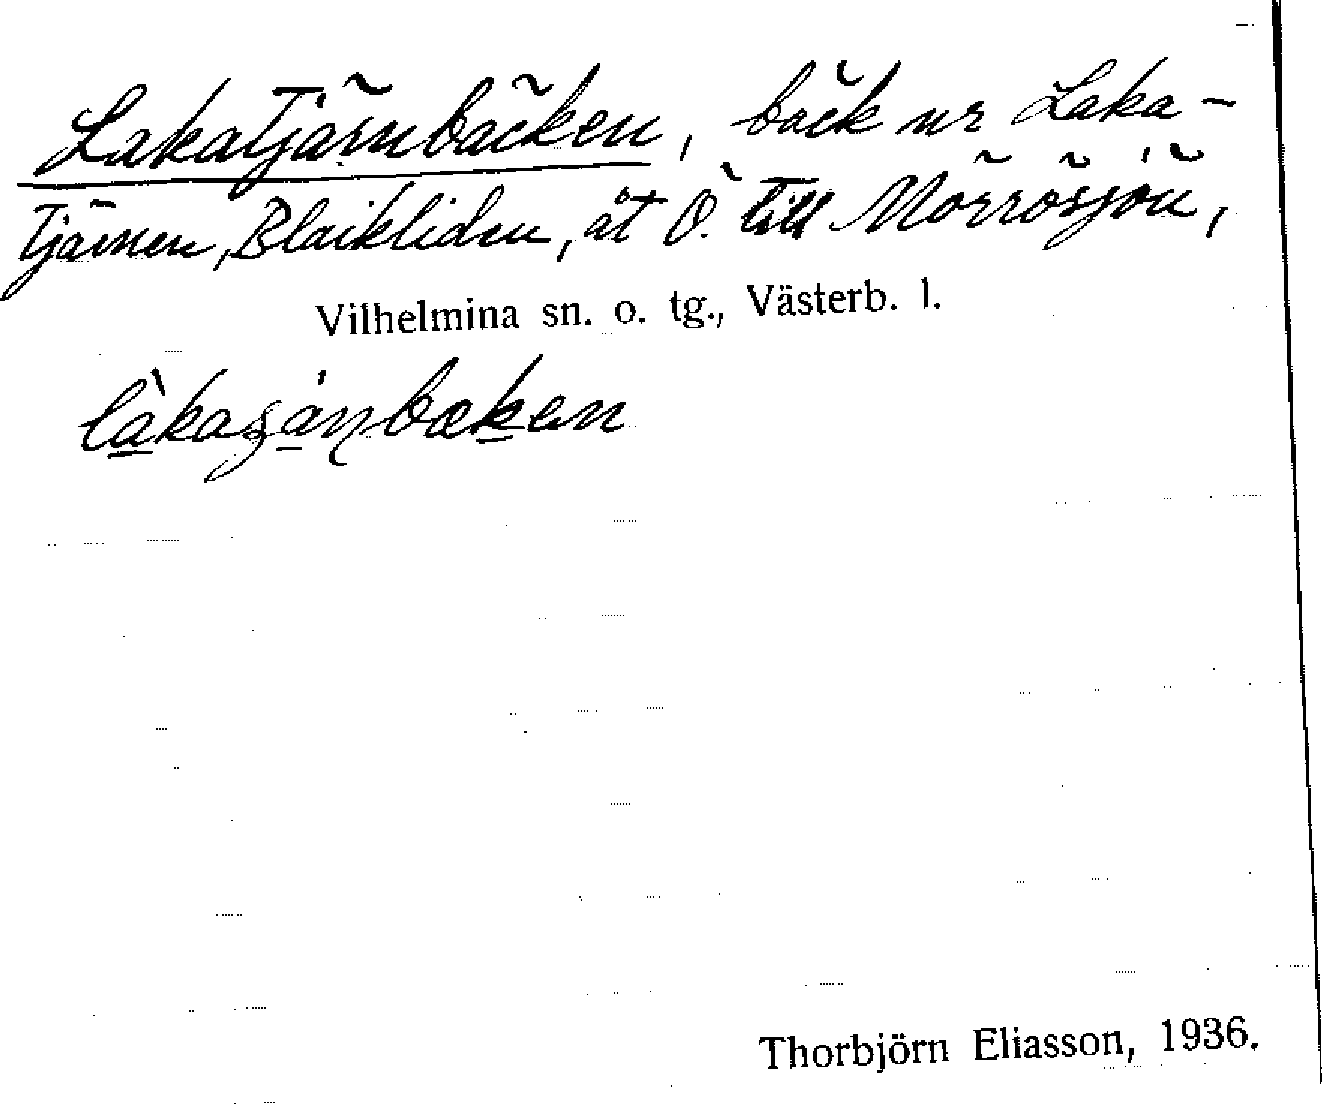 Lakatjärnbäcken, bäck ur Laka-
tjärnen, Blaikliden, åt Ö. till Mörrösjön,
Vilhelmina sn. o. tg., Västerb. l.
Thorbjörn Eliasson, 1936.